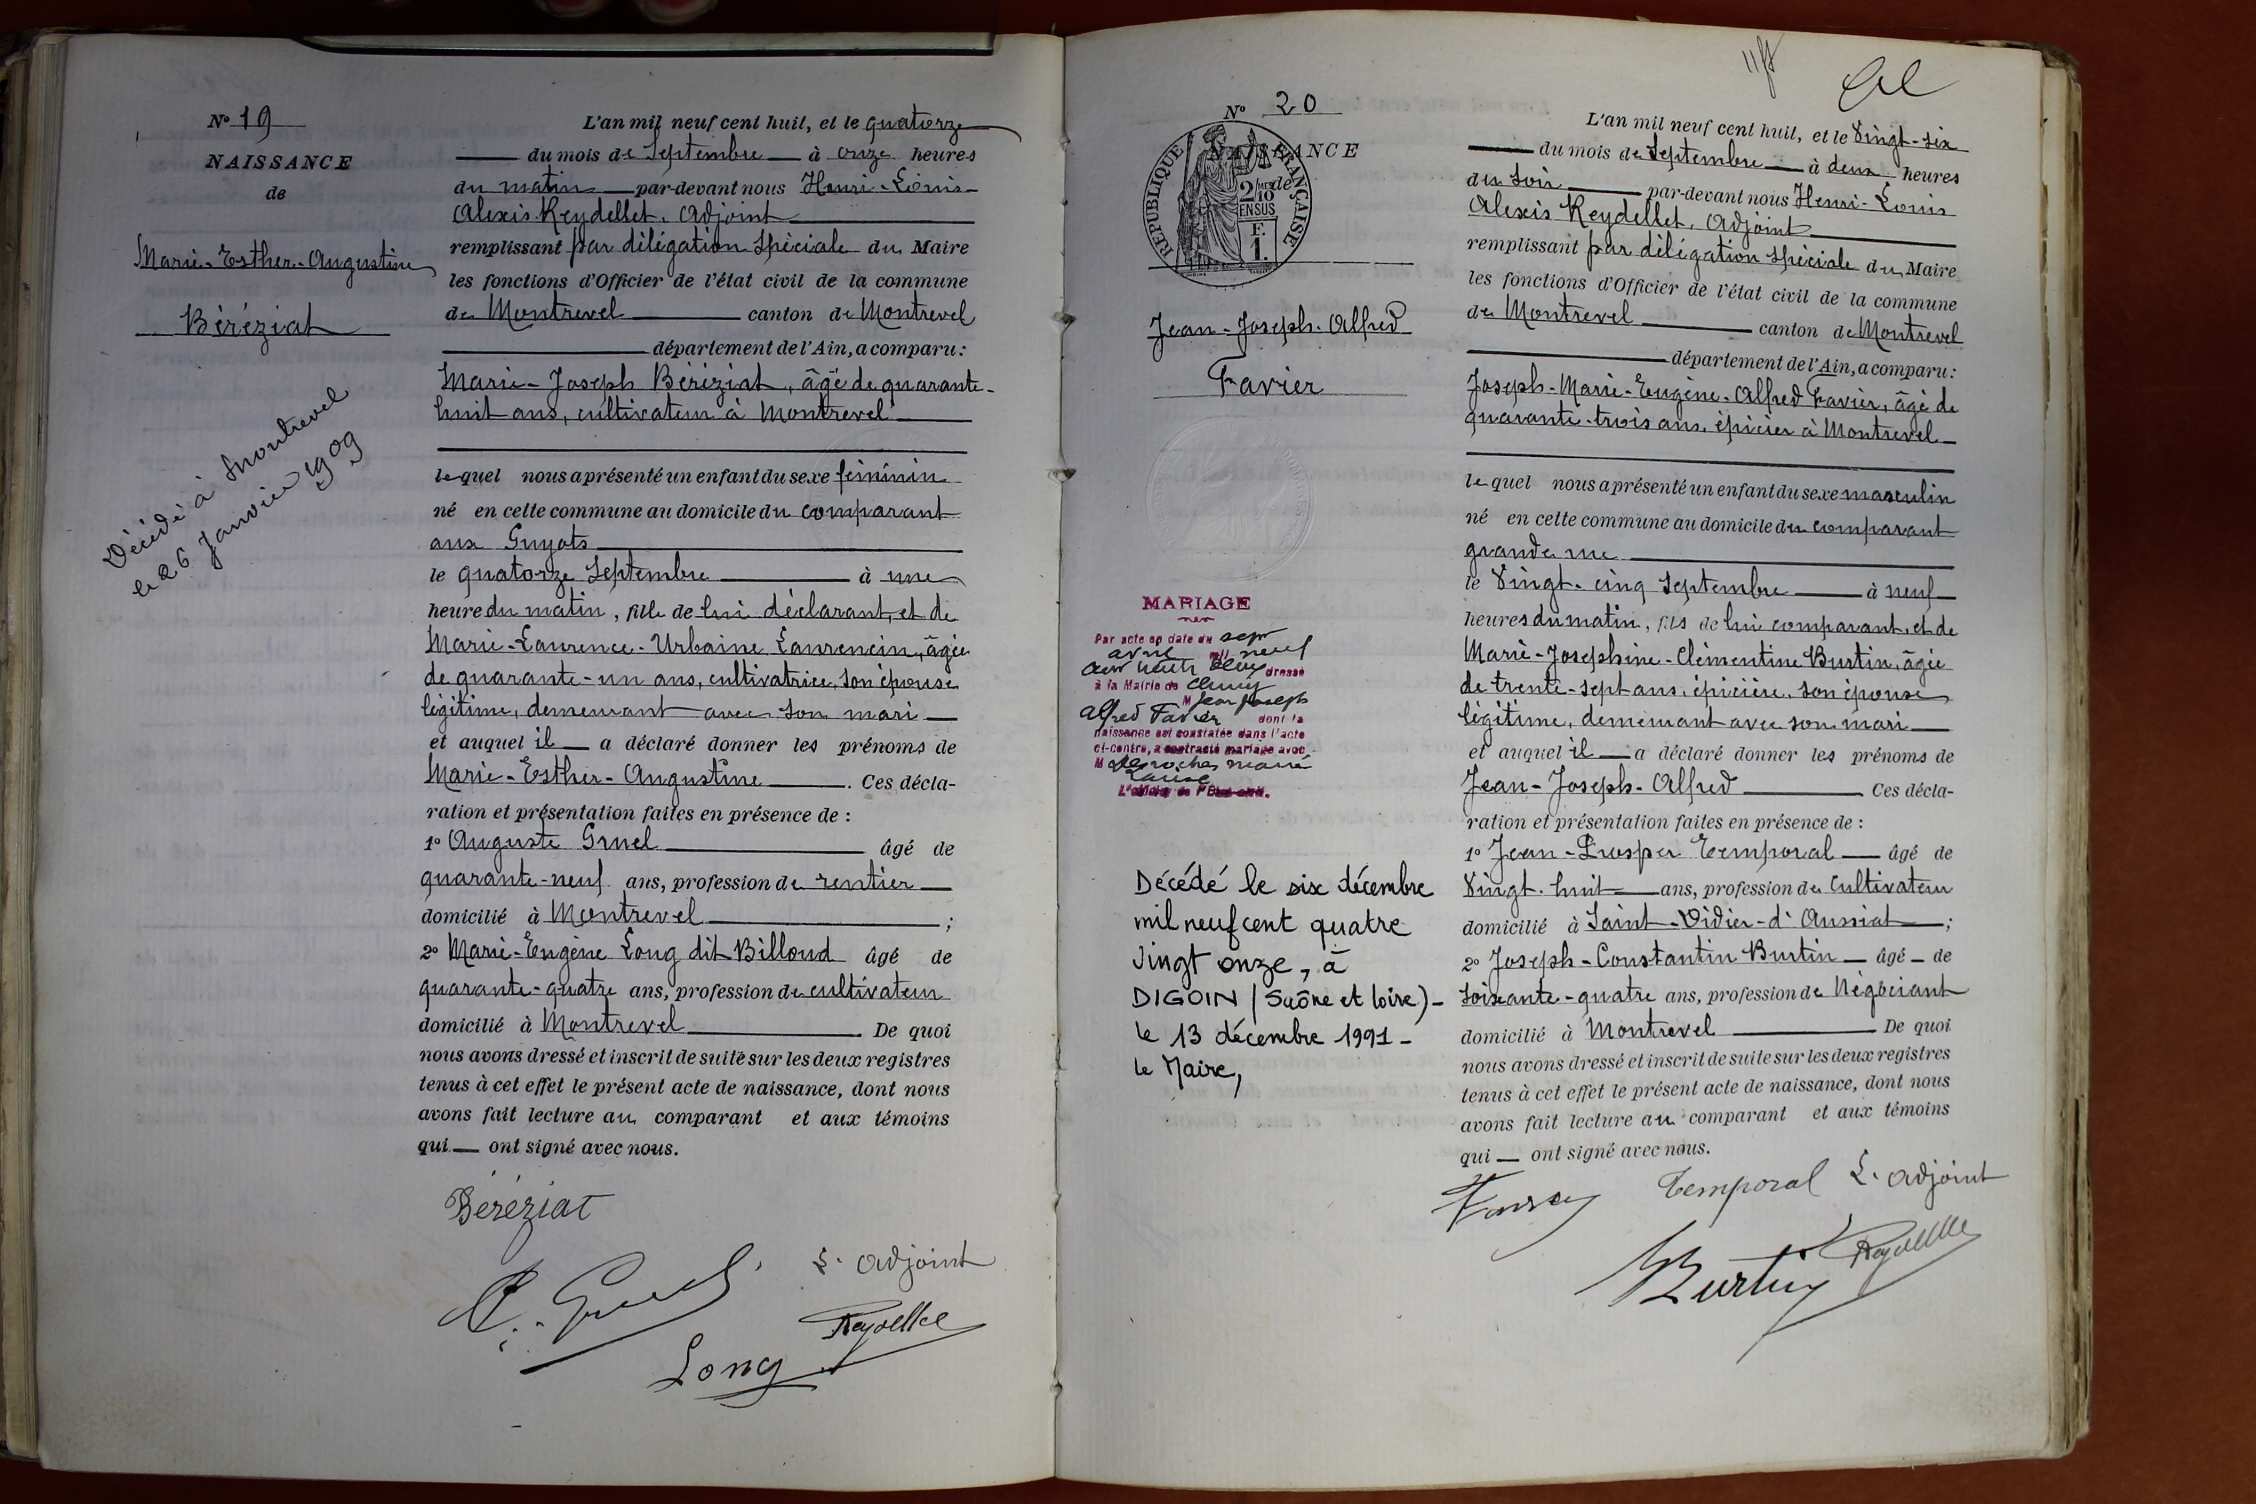 N° 19
NAISSANCE
de
Marie-Esther-Augustine
Béréziat
Décédé à Montrevel
le 26 Janvier 1909
L'an mil neuf cent huit, et le quatorze
du mois de Septembre à onze heures
du matin par-devant nous Henri-Louis-
Alexis Reydellet, Adjoint
remplissant par délégation spéciale du Maire
les fonctions d'Officier de l'état civil de la commune
de Montrevel canton de Montrevel
département de l'Ain, a comparu:
Marie-Joseph Béréziat, âgé de quarante-
huit ans, cultivateur à Montrevel
lequel nous a présenté un enfant du sexe féminin
né en cette commune au domicile du comparant
aux Guyots
le quatorze Septembre à une
heure du matin, fille de lui déclarant, et de
Marie-Laurence-Urbaine Laurencin, âgée
de quarante-un ans, cultivatrice, son épouse
légitime, demeurant avec son mari
et auquel il a déclaré donner les prénoms de
Marie-Esther-Augustine. Ces décla-
ration et présentation faites en présence de :
1° Auguste Gruel âgé de
quarante-neuf ans, profession de rentier
domicilié à Montrevel ;
2° Marie-Eugène Long dit Billoud âgé de
quarante-quatre ans, profession de cultivateur
domicilié à Montrevel De quoi
nous avons dressé et inscrit de suite sur les deux registres
tenus à cet effet le présent acte de naissance, dont nous
avons fait lecture au comparant et aux témoins
qui ont signé avec nous.
Béréziat
L'adjoint
Reydellet
Long
N° 20
NAISSANCE
de
REPUBLIQUE FRANÇAISE
2/10
EN SUS
F.
1.
Jean-Joseph-Alfred
Favier
MARIAGE
Par acte en date du sept
avril mil neuf
cent trente deux dressé
à la Mairie de Cluny
M Jean Joseph
Alfred Favier dont la
naissance est constatée dans l'acte
ci-contre, a contracté mariage avec
M Desroches Marie
L'Officier de l'Etat civil.
Décédé le six décembre
mil neuf cent quatre
vingt onze, à
DIGOIN (Saône et Loire)-
le 13 décembre 1991-
le Maire,
L'an mil neuf cent huit, et le Vingt-six
du mois de Septembre à deux heures
du soir par-devant nous Henri-Louis
Alexis Reydellet, Adjoint
remplissant par délégation spéciale du Maire
les fonctions d'Officier de l'état civil de la commune
de Montrevel canton de Montrevel
département de l'Ain, a comparu:
Joseph-Marie-Eugène-Alfred Favier, âgé de
quarante-trois ans, épicier à Montrevel
lequel nous a présenté un enfant du sexe masculin
né en cette commune au domicile du comparant
grande rue
le Vingt-cinq Septembre à neuf
heures du matin, fils de lui comparant, et de
Marie-Joséphine-Clémentine Burtin, âgée
de trente-sept ans, épicière, son épouse
légitime, demeurant avec son mari
et auquel il a déclaré donner les prénoms de
Jean-Joseph-Alfred Ces décla-
ration et présentation faites en présence de :
1° Jean-Prosper Temporal âgé de
Vingt-huit ans, profession de Cultivateur
domicilié à Saint-Didier-d'Aussiat ;
2° Joseph-Constantin Burtin âgé de
soixante-quatre ans, profession de Négociant
domicilié à Montrevel De quoi
nous avons dressé et inscrit de suite sur les deux registres
tenus à cet effet le présent acte de naissance, dont nous
avons fait lecture au comparant et aux témoins
qui ont signé avec nous.
Temporal L'adjoint
Burtin Reydellet